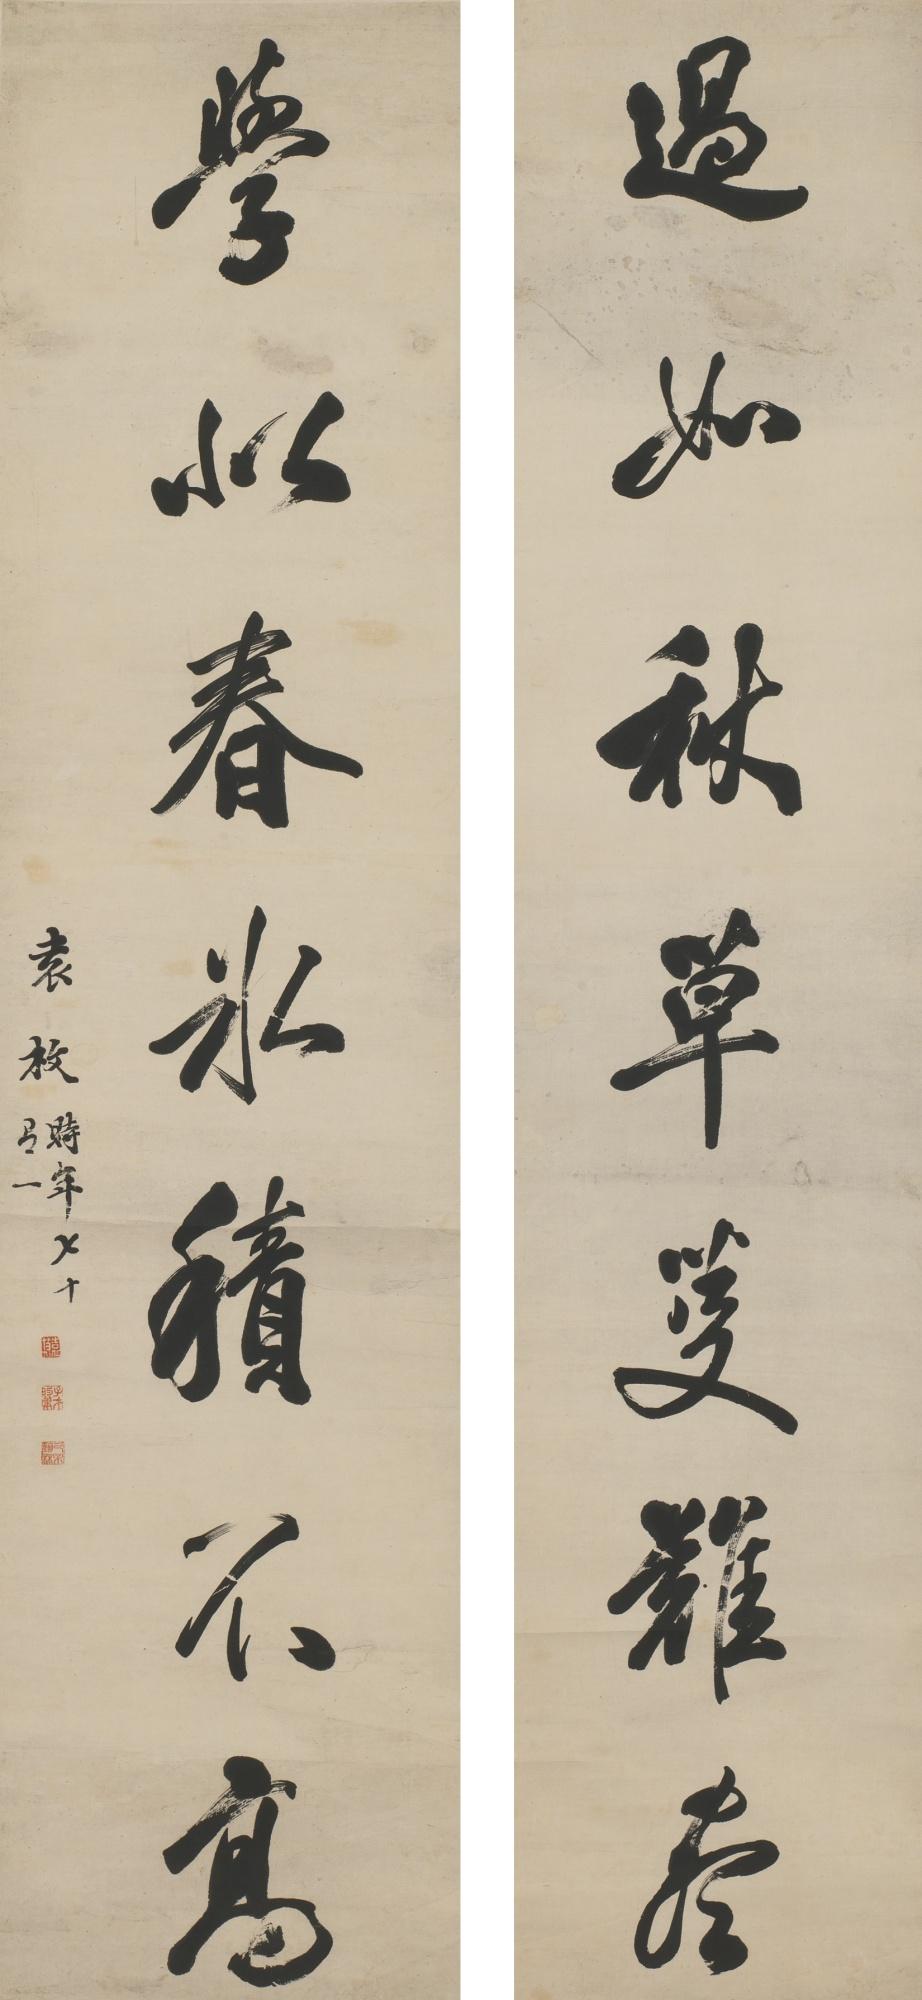 過如秋草芟難盡
學似春冰積不高
袁枚時年七十
有一